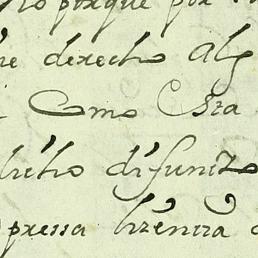 lo porque por
derecho Alg
Como Esta
dho difunto
pressa lizenzia